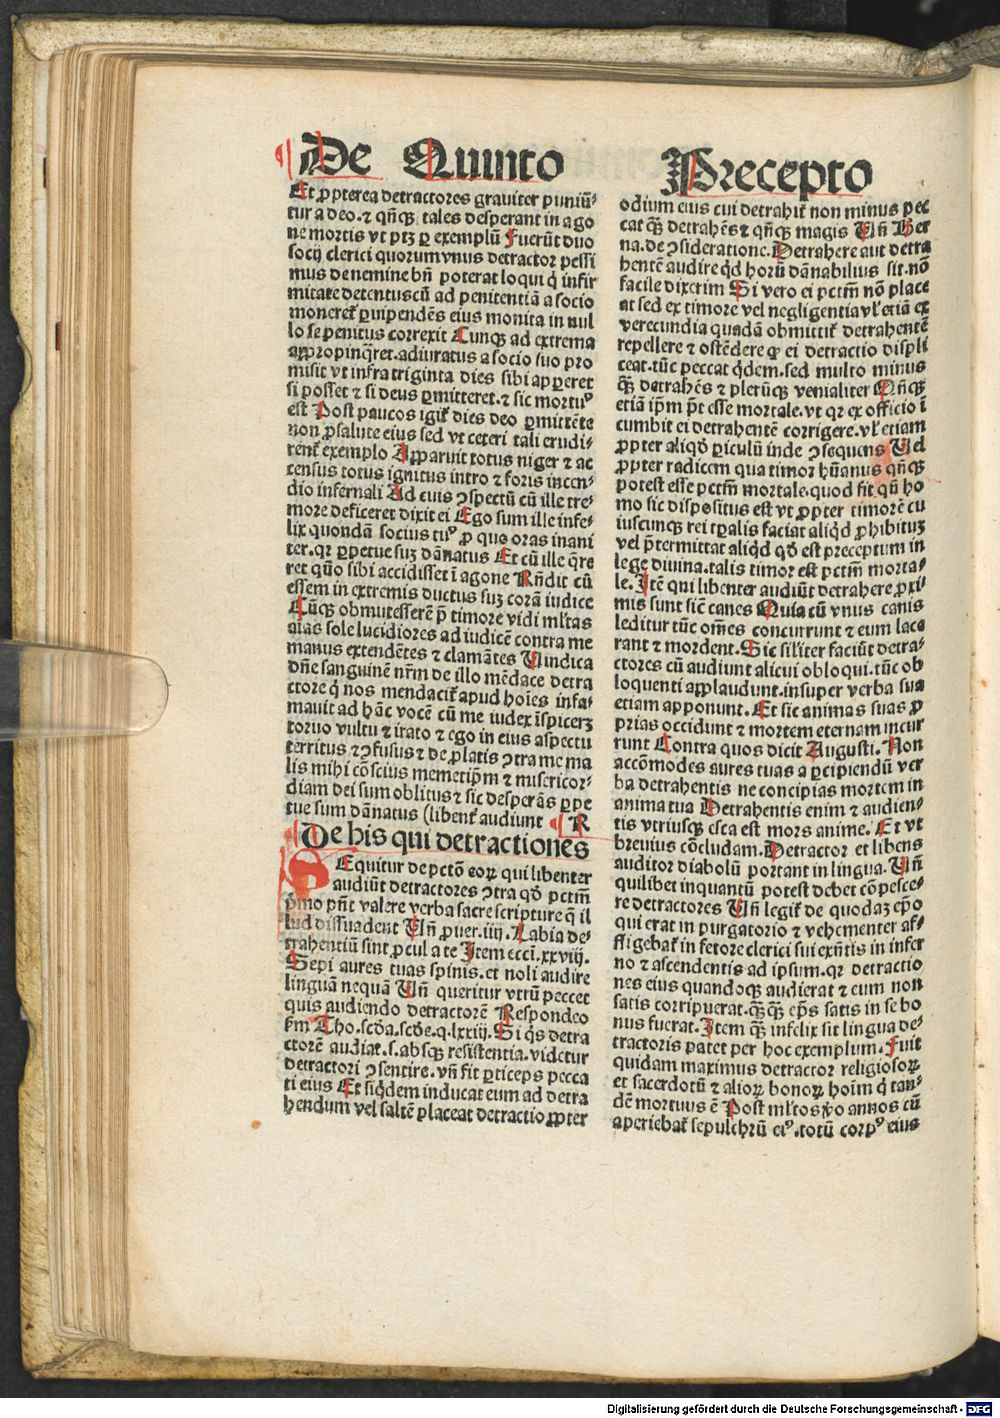 De Quinto Precepto
Et ꝓpterea detractores grauiter puniũ⸗
tur a deo. ⁊ qñqꝫ tales desperant in ago
ne mortis vt ptꝫ ꝑ exemplũ Fuerũt duo
socij clerici quorum vnus detractor pessi
mus de nemine bñ poterat loqui q̇ infir
mitate detentus cũ ad penitentiã a socio
moneret̃ ꝑuipendẽs eius monita in nul
lo se penitus correxit Cunqꝫ ad extrema
aꝓpropinq̃ret. adiuratus a socio suo pro
misit vt infra triginta dies sibi appareret
si posset ⁊ si deus ꝑmitteret. ⁊ sic mortuꝰ
est Post paucos igit̃ dies deo ꝑmittẽte
non ꝓ salute eius sed vt ceteri tali erudi⸗
rent̃ exemplo Apparuit totus niger ⁊ ac
census totus ignitus intro ⁊ foris incen⸗
dio infernali Ad cuius ꝯspectũ cũ ille tre⸗
more deficeret dixit ei Ego sum ille infe⸗
lix quondã socius tuꝰ ꝓ quo oras inani
ter. qꝛ ꝑpetue suꝫ dãnatus Et cũ ille q̃re
ret quõ sibi accidisset ĩ agone Rñdit cũ
essem in extremis ductus suꝫ corã iudice
Cũqꝫ obmutesserẽ p̃ timore vidi ml̃tas
aĩas sole lucidiores ad iudicẽ contra me
manus extendẽtes ⁊ clamãtes Uindica
dñe sanguinẽ nr̃m de illo mẽdace detra
ctore q̇ nos mendacit̃ apud hoĩes infa⸗
mauit ad hãc vocẽ cũ me iudex ĩspicerꝫ
toruo vultu ⁊ irato ⁊ ego in eius aspectu
territus ⁊ ꝯfusus ⁊ de ꝓlatis ꝯtra me ma
lis mihi cõscius memetip̃m ⁊ misericor⸗
diam dei sum oblitus ⁊ sic desperãs ꝑpe
tue sum dãnatus (libent̃ audiunt R
De his qui detractiones
SEquitur de pctõ eoꝝ qui libenter
audiũt detractores ꝯtra qḋ pctm̃
p̃mo pñt valere verba sacre scripture q̃ il
lud dissuadent Uñ ꝓuer. iiij. Labia de⸗
trahentiũ sint ꝓcul a te Item eccl̃. xxviij.
Sepi aures tuas spinis. et noli audire
linguã nequã Uñ queritur vtrũ peccet
quis audiendo detractorẽ Respondeo
ẜm Tho. scḋa. scḋe. q. lxxiij. Si q̇s detra
ctorẽ audiat. s. absqꝫ resistentia. videtur
detractori ꝯsentire. vñ fit ꝑticeps pecca
ti eius Et siq̇dem inducat eum ad detra
hendum vel saltẽ placeat detractio ꝓpter
odium eius cui detrahit̃ non minus pec
cat qͣꝫ detrahẽs ⁊ qñqꝫ magis Uñ Ber
na. de ꝯsideratione. Detrahere aut detra
hentẽ audire qḋ horũ dãnabilius sit. nõ
facile dixerim Si vero ei pctm̃ nõ place
at sed ex timore vel negligentia vl̃ etiã ex
verecundia quadã obmittit̃ detrahentẽ
repellere ⁊ ostẽdere ꝙ ei detractio displi
ceat. tũc peccat q̇dem. sed multo minus
qͣꝫ detrahẽs ⁊ plerũqꝫ venialiter Qñqꝫ
etiã ip̃m p̃t esse mortale. vt qꝛ ex officio ĩ
cumbit ei detrahentẽ corrigere. vl̃ etiam
ꝓpter aliqḋ ꝑiculũ inde ꝯsequens Uel
ꝓpter radicem qua timor hũanus qñqꝫ
potest esse pctm̃ mortale. quod fit qñ ho
mo sic dispositus est vt ꝓpter timorẽ cu
iuscunqꝫ rei tꝑalis faciat aliq̇d ꝓhibituꝫ
vel p̃termittat aliq̇d qḋ est preceptum in
lege diuina. talis timor est pctm̃ morta⸗
le. Itẽ qui libenter audiũt detrahere ꝓxi⸗
mis sunt sic̃ canes Quia cũ vnus canis
leditur tũc om̃es concurrunt ⁊ eum lace
rant ⁊ mordent. Sic sil̃iter faciũt detra⸗
ctores cũ audiunt alicui obloqui. tũc ob
loquenti applaudunt. insuper verba sua
etiam apponunt. Et sic animas suas ꝓ
prias occidunt ⁊ mortem eternam incur
runt Contra quos dicit Augusti. Non
accõmodes aures tuas a ꝑcipiendũ ver
ba detrahentis ne concipias mortem in
anima tua Detrahentis enim ⁊ audien⸗
tis vtriusqꝫ esca est mors anime. Et vt
breuius cõcludam. Detractor et libens
auditor diabolũ portant in lingua. Uñ
quilibet inquantũ potest debet cõpesce⸗
re detractores Uñ legit̃ de quodaꝫ ep̃o
qui erat in purgatorio ⁊ vehementer af⸗
fligebat̃ in fetore clerici sui exñtis in infer
no ⁊ ascendentis ad ipsum. qꝛ detractio
nes eius quandoqꝫ audierat ⁊ eum non
satis corripuerat. qͣꝫqͣꝫ ep̃s satis in se bo
nus fuerat. Item qͣꝫ infelix sit lingua de⸗
tractoris patet per hoc exemplum. Fuit
quidam maximus detractor religiosoꝝ
et sacerdotũ ⁊ alioꝝ bonoꝝ hoĩm q̇ tan⸗
dẽ mortuus ẽ Post ml̃tos ṽo annos cũ
aperiebat̃ sepulchrũ eiꝰ. totũ corpꝰ eius
Digitalisierung gefördert durch die Deutsche Forschungsgemeinschaft - DFG